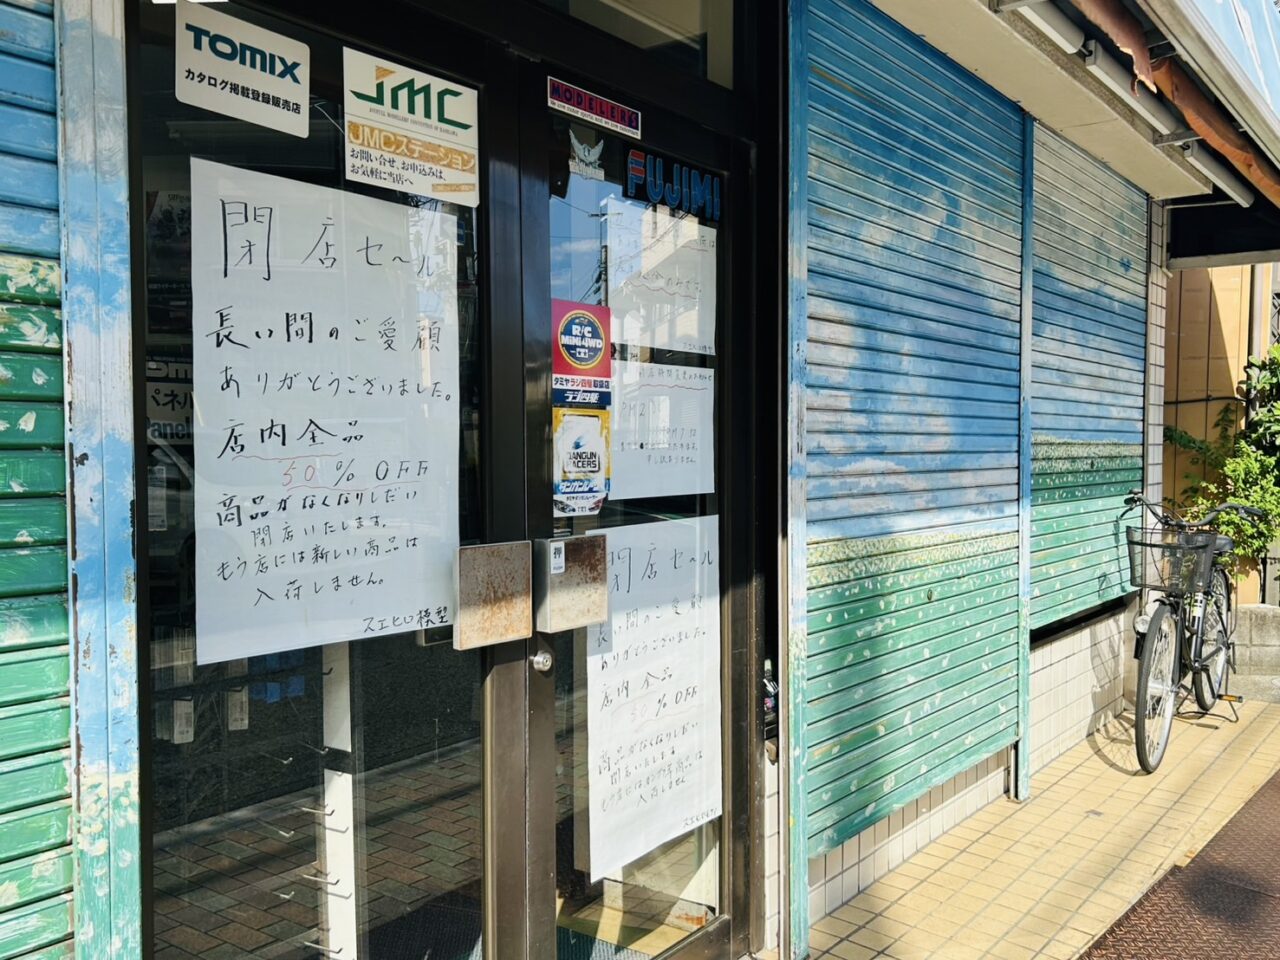 TOMIX
カタログ掲載登録販売店
JMC
JMCステーション
お問い合せ、お申込みは、
お気軽に当店へ
閉店セール
長い間のご愛顧
ありがとうございました。
店内全品
50%OFF
商品がなくなりしだい
閉店いたします。
もう店には新しい商品は
入荷しません。
スエヒロ模型
パネル
Panel
MODELERS
FUJIMI
R/C
MINI 4WD
タミヤラジ四駆取扱店
ラジ四駆
DANGUN
RACERS
ダンガンレーサー
押
PM2
閉店セール
長い間のご愛顧
ありがとうございました。
店内全品
50%OFF
商品がなくなりしだい
閉店いたします
入荷しません